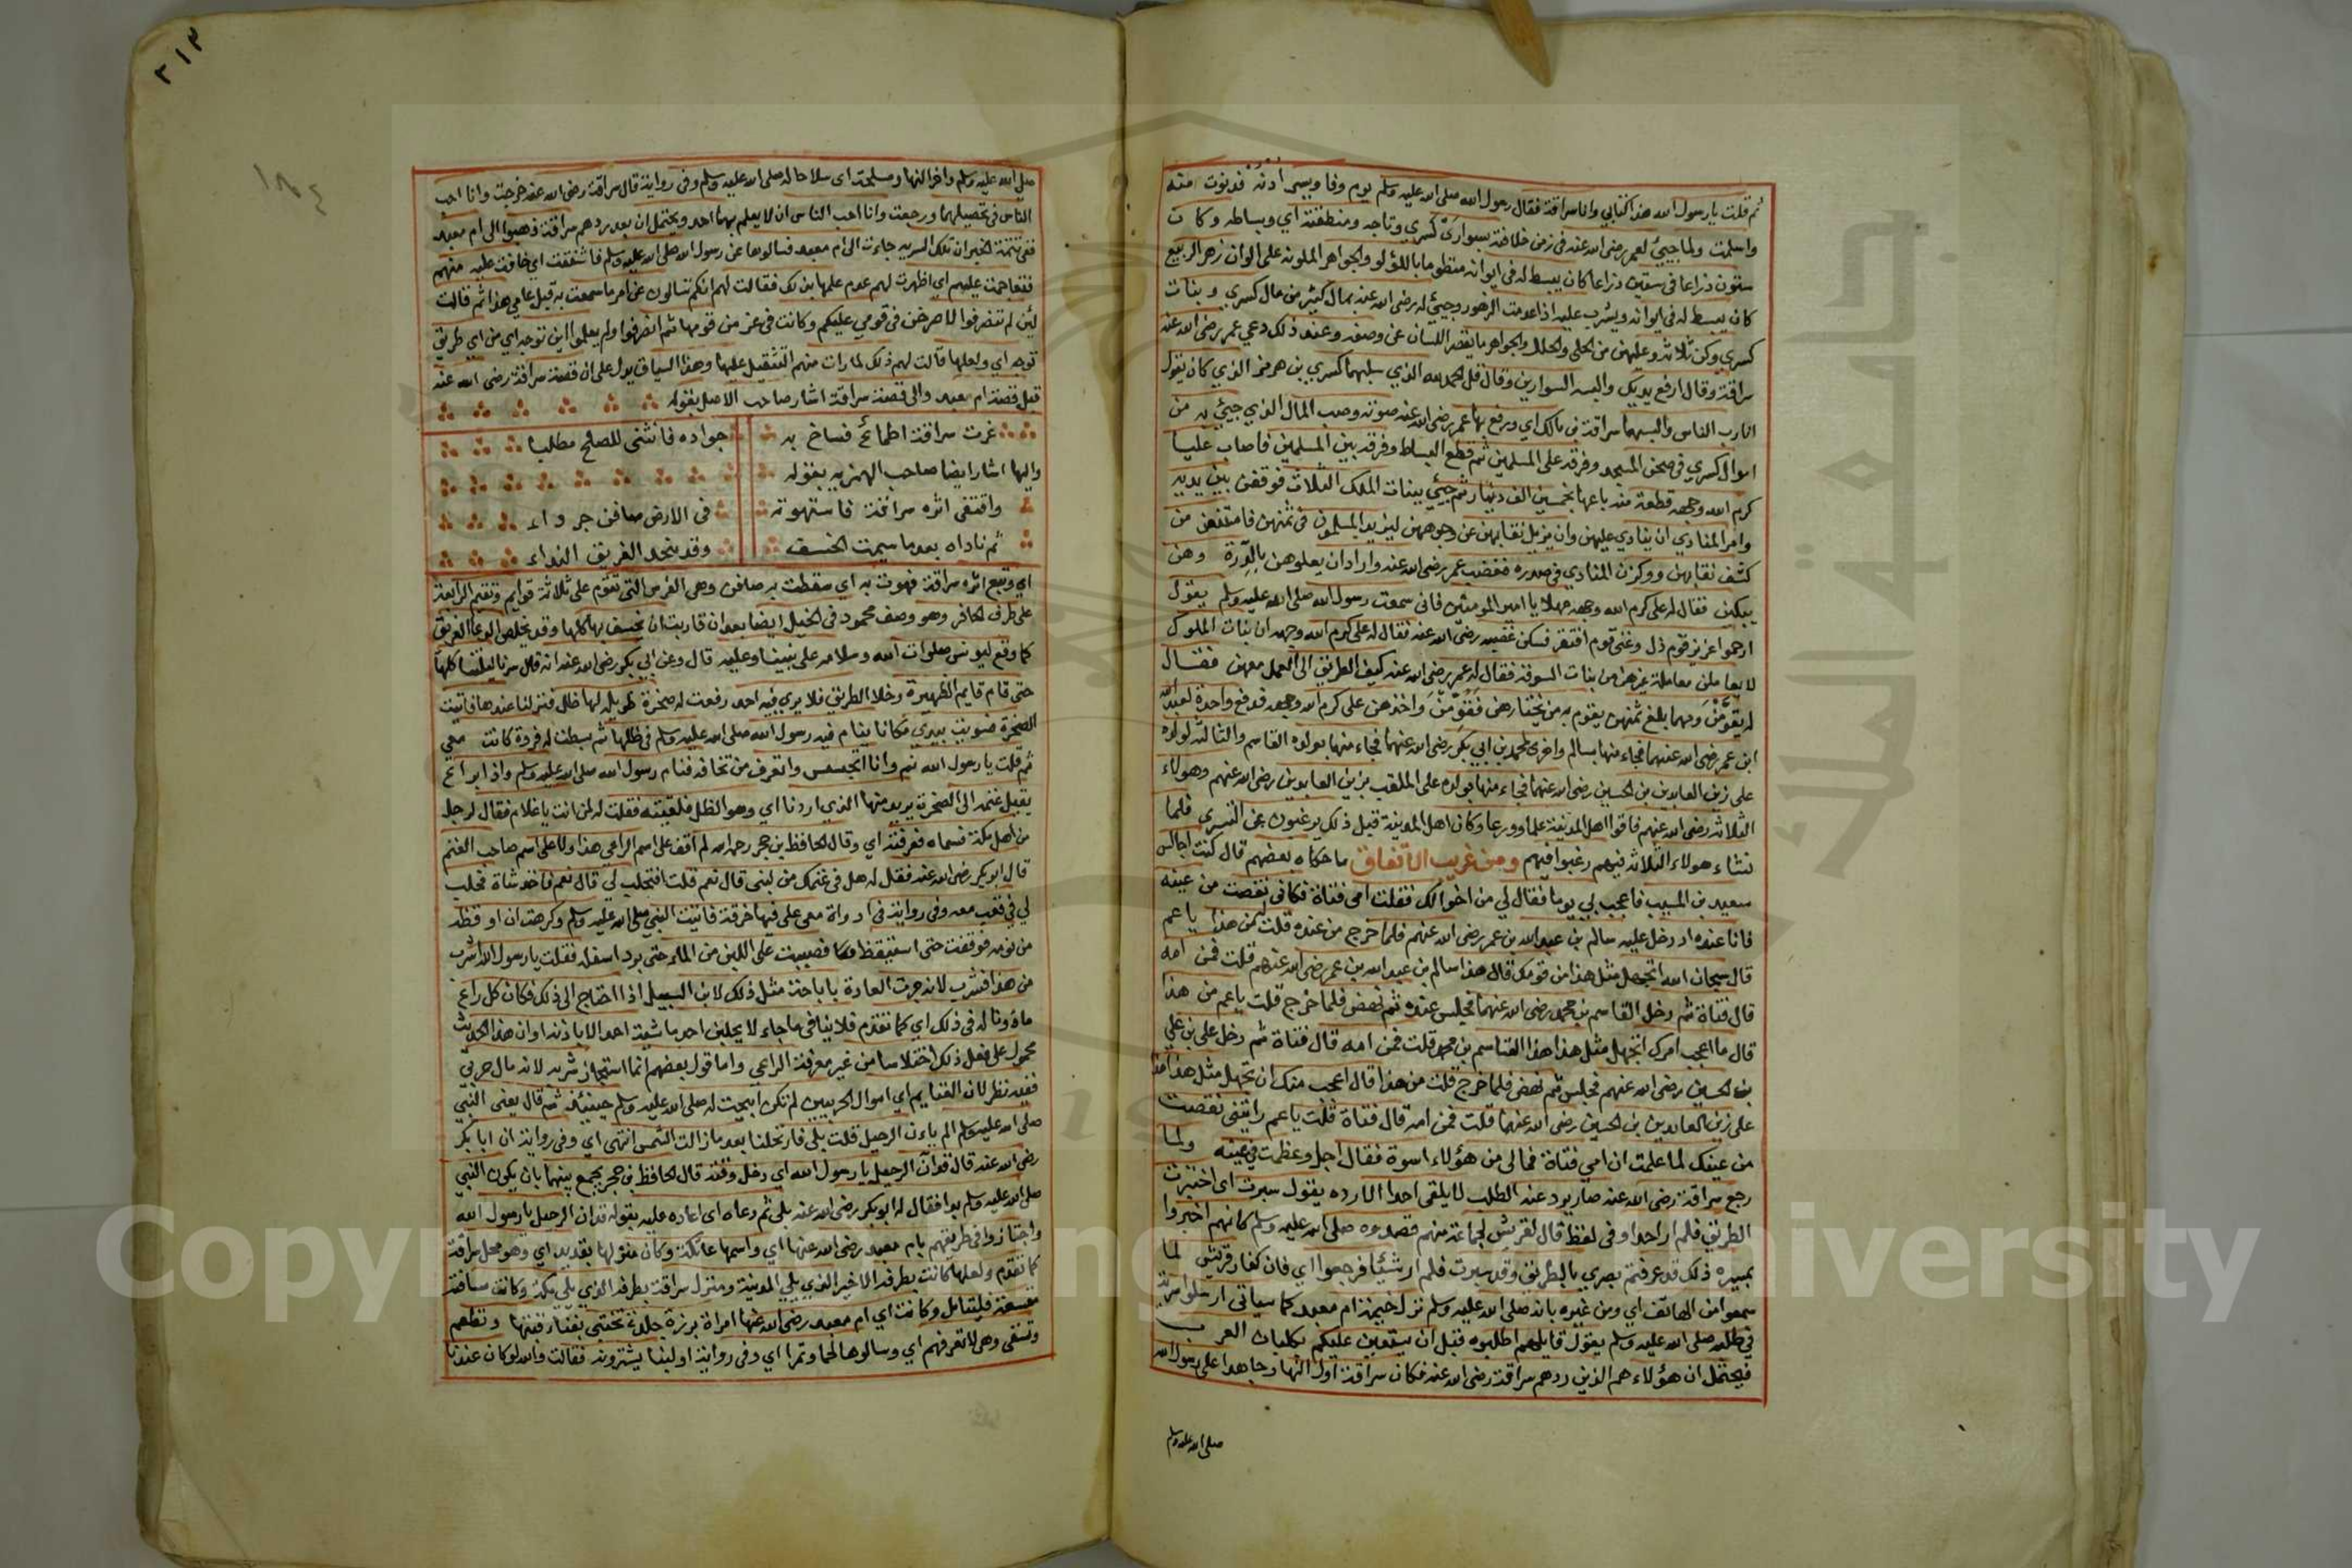 ثم قلت يا رسول الله هذا كتابي وانا سراقة فقال رسول الله صلى الله عليه وسلم يوم وفا وبر ادنه فدنوت منه
واسلمت ولما جيئ لعمر رضى الله عنه فى زمن خلافته بسوارى كسري وتاجه ومنطقته اي وبساطه وكات
ستون ذراعا فى ستين ذراعا كان يبسط له فى ايوانه منظوما باللؤلو والجواهر الملونة على الوان زهر الربيع
كان يبسط له فى ايوانه ويشرب عليه اذا عدمت الزهور وجيئ له رضى الله عنه بمال كثير من مال كسري وبنات
كسري وكن ثلاثة وعليهن من الحلى والحلل والجواهر ما يقصر اللسان عن وصفه وعند ذلك دعي عمر رضى الله عنه
سراقة وقال ارفع يديك والبسه السوارين وقال قل الحمد لله الذي سلبهما كسري بن هرمز الذي كان يقول
انا رب الناس والبسهما سراقة بن مالك اي ورفع بها عمر رضى الله عنه صوته وصب المال الذي جيئ به من
اموال كسري فى صحن المسجد وفرقه على المسلمين ثم قطع البساط وفرقه بين المسلمين فاصاب عليا
كرم الله وجهه قطعة منه باعها بخمسين الف دينار ثم جيئ ببنات الملك الثلاث فوقفن بين يديه
وامر المنادي ان ينادي عليهن وان يزيل نقابهن عن وجوههن ليزيد المسلمون فى ثمنهن فامتنعن من
كشف نقابهن ووكزن المنادي فى صدره فغضب عمر رضى الله عنه واراد ان يعلوهن بالدرة وهن
يبكين فقال له على كرم الله وجهه مهلا يا امير المومنين فانى سمعت رسول الله صلى الله عليه وسلم يقول
ارحموا عزيز قوم ذل وغنى قوم افتقر فسكن غضبه رضى الله عنه فقال له على كرم الله وجهه ان بنات الملوك
لا يعاملن معاملة غيرهن من بنات السوقة فقال له عمر رضى الله عنه كيف الطريق الى العمل معهن فقال
له يقومن ومهما بلغ ثمنهن يقوم به من يختارهن فقومن واخذهن على كرم الله وجهه فدفع واحدة لعبد الله
ابن عمر رضى الله عنهما فجاء منها بسالم واخري لمحمد بن ابي بكر رضى الله عنهما فجاء منها بولده القاسم والثالثة لولده
على زين العابدين بن الحسين رضى الله عنهما فجاء منها بولده على الملقب بزين العابدين رضى الله عنهم وهولاء
الثلاثة رضى الله عنهم فاقوا اهل المدينة علما وورعا وكان اهل المدينة قبل ذلك يرغبون عن التسري فلما
نشاء هولاء الثلاثة فيهم رغبوا فيهم ومن غريب الاتفاق ما حكاه بعضهم قال كنت اجالس
سعيد بن المسيب فاعجب بي يوما فقال لي من اخوالك فقلت امى فتاة فكانى نقصت من عينه
فانا عنده اذ دخل عليه سالم بن عبد الله بن عمر رضى الله عنهم فلما خرج من عنده قلت من هذا يا عم
قال سبحان الله اتجهل مثل هذا من قومك قال هذا سالم بن عبد الله بن عمر رضى الله عنهم قلت فمن امه
قال فتاة ثم دخل القاسم بن محمد رضى الله عنهما فجلس عنده ثم نهض فلما خرج قلت يا عم من هذا
قال ما اعجب امرك اتجهل مثل هذا هذا القاسم بن محمد قلت فمن امه قال فتاة ثم دخل على بن علي
بن الحسين رضى الله عنهم فجلس ثم نهض فلما خرج قلت من هذا قال اعجب منك ان تجهل مثل هذا هذا
على زين العابدين بن الحسين رضى الله عنهما قلت فمن امه قال فتاة قلت يا عم رايتنى نقصت
من عينك لما علمت ان امي فتاة فما لى من هؤلاء اسوة فقال اجل وعظمت فى عينه ولما
رجع سراقة رضى الله عنه صار يرد عنه الطلب لا يلقى احدا الا رده يقول سبرت اى اختبرت
الطريق فلم ار احدا وفى لفظ قال لقريش لجماعة منهم قصدوه صلى الله عليه وسلم كانهم اخبروا
بمسيره ذلك قد عرفتم بصري بالطريق وقد سبرت فلم ار شيئا فرجعوا اي فان كفار قريش لما
سمعوا من الهاتف اي ومن غيره بانه صلى الله عليه وسلم نزل خيمة ام معبد كما سياتى ارسلوا سرية
في طلبه صلى الله عليه وسلم يقول قايلهم اطلبوه قبل ان يستعين عليكم بكلبان العرب
فيحتمل ان هؤلاء هم الذين ردهم سراقة رضى الله عنه فكان سراقة اول النهار جاهدا على رسول الله
صلى الله عليه وسلم
٢١٣
١٨٤
صلى الله عليه وسلم واخر النهار مسلحة اى سلاحا له صلى الله عليه وسلم وفى رواية قال سراقة رضى الله عنه خرجت وانا احب
الناس فى تحصيلهما ورجعت وانا احب الناس ان لا يعلم بهما احد ويحتمل ان بعد ردهم سراقة ذهبوا الى ام معبد
ففى تتمة الخبر ان تلك السرية جاءت الى ام معبد فسالوها عن رسول الله صلى الله عليه وسلم فاشفقت اى خافت عليه منهم
فتعاجمت عليهم اي اظهرت لهم عدم علمها بذلك فقالت لهم انكم تسالون عن امر ما سمعت به قبل عامي هذا ثم قالت
لئن لم تنصرفوا لاصرخن فى قومي عليكم وكانت فى عز من قومها ثم انصرفوا ولم يعلموا اين توجه اي من اي طريق
توجه اي ولعلها قالت لهم ذلك لما رات منهم التثقيل عليها وهذا السياق يدل على ان قصة سراقة رضى الله عنه
قبل قصة ام معبد والى قصة سراقة اشار صاحب الاصل بقوله
غرت سراقة اطمائح فساخ به جواده فانثنى للصلح مطلبا
واليها اشار ايضا صاحب الهمزيه بقوله
واقتفى اثره سراقة فاستهوته فى الارض صافن جرداء
ثم ناداه بعد ما سيمت الخسف وقد ينجد الغريق النداء
اي وتبع اثره سراقة فهوت به اى سقطت به صافن وهى الفرس التى تقوم على ثلاثة قوايم وتقيم الرابعة
على طرف الحافر وهو وصف محمود فى الخيل ايضا بعد ان قاربت ان يخسف بها كلها وقد يخلص الدعا الغريق
كما وقع ليونس صلوات الله وسلامه على نبينا وعليه قال وعن ابي بكر رضى الله عنه انه قال سرنا ليلتنا كلها
حتى قام قايم الظهيرة وخلا الطريق فلا يري فيه احد رفعت لنا صخرة طويلة لها ظل فنزلنا عندها فاتيت
الصخرة فسويت بيدي مكانا ينام فيه رسول الله صلى الله عليه وسلم فى ظلها ثم بسطت له فروة كانت معي
ثم قلت يا رسول الله نم وانا اتجسس واتعرف من تخافه فنام رسول الله صلى الله عليه وسلم واذا براع
يقبل بغنمه الى الصخرة يريد منها الذي اردنا اي وهو الظل فلقيته فقلت له لمن انت يا غلام فقال لرجل
من اهل مكة فسماه فعرفته اي وقال الحافظ بن حجر رحمه الله لم اقف على اسم الراعي هذا ولا على اسم صاحب الغنم
قال ابو بكر رضى الله عنه فقلت له هل فى غنمك من لبنى قال نعم قلت افتحلب لي قال نعم فاخذ شاة فحلب
لي في قعب معه وفى رواية فى اداوة معى على فيها خرقة فاتيت النبي صلى الله عليه وسلم وكرهت ان اوقظه
من نومه فوقفت حتى استيقظ فصببت على اللبن من الماء حتى برد اسفله فقلت يا رسول الله اشرب
من هذا فشرب لانه جرت العادة باباحة مثل ذلك لابن السبيل اذا احتاج الى ذلك فكان كل راع
ماذونا له فى ذلك اي كما تقدم فلا ينافى ما جاء لا يحلبن احد ماشية احد الا باذنه او ان هذا الحديث
محمول على فعل ذلك اختلاسا من غير معرفة الراعي واما قول بعضهم انما استجاز شربه لانه مال حربي
ففيه نظر لان الغنايم اي اموال الحربيين لم تكن ابيحت له صلى الله عليه وسلم حينئذ ثم قال يعنى النبي
صلى الله عليه وسلم الم ياءن الرحيل قلت بلى فارتحلنا بعد ما زالت الشمس انتهى اي وفى رواية ان ابا بكر
رضى الله عنه قال قد آن الرحيل يا رسول الله اي دخل وقته قال الحافظ بن حجر يجمع بينهما بان يكون النبي
صلى الله عليه وسلم بدا فقال له ابو بكر رضى الله عنه بلى ثم دعاه اى اعاده عليه بقوله قد ان الرحيل يا رسول الله
واجتازوا فى طريقهم بام معبد رضى الله عنها اي واسمها عاتكة وكان منزلها بقديد اي وهو محل سراقة
كما تقدم ولعلها كانت بطرفه الاخير الذي يلي المدينة ومنزل سراقة بطرفه الذي يلى مكة وكانت مسافة
متسعة فليتامل وكانت اي ام معبد رضى الله عنها امراة برزة جلدة تختبى بفنا قبتها وتطعم
وتسقى وهى لا تعرفهم اي وسالوها لحما وتمرا اي وفى رواية او لبنا يشترونه فقالت والله لو كان عندنا
Copyright © King Saud University
جامعة الملك سعود